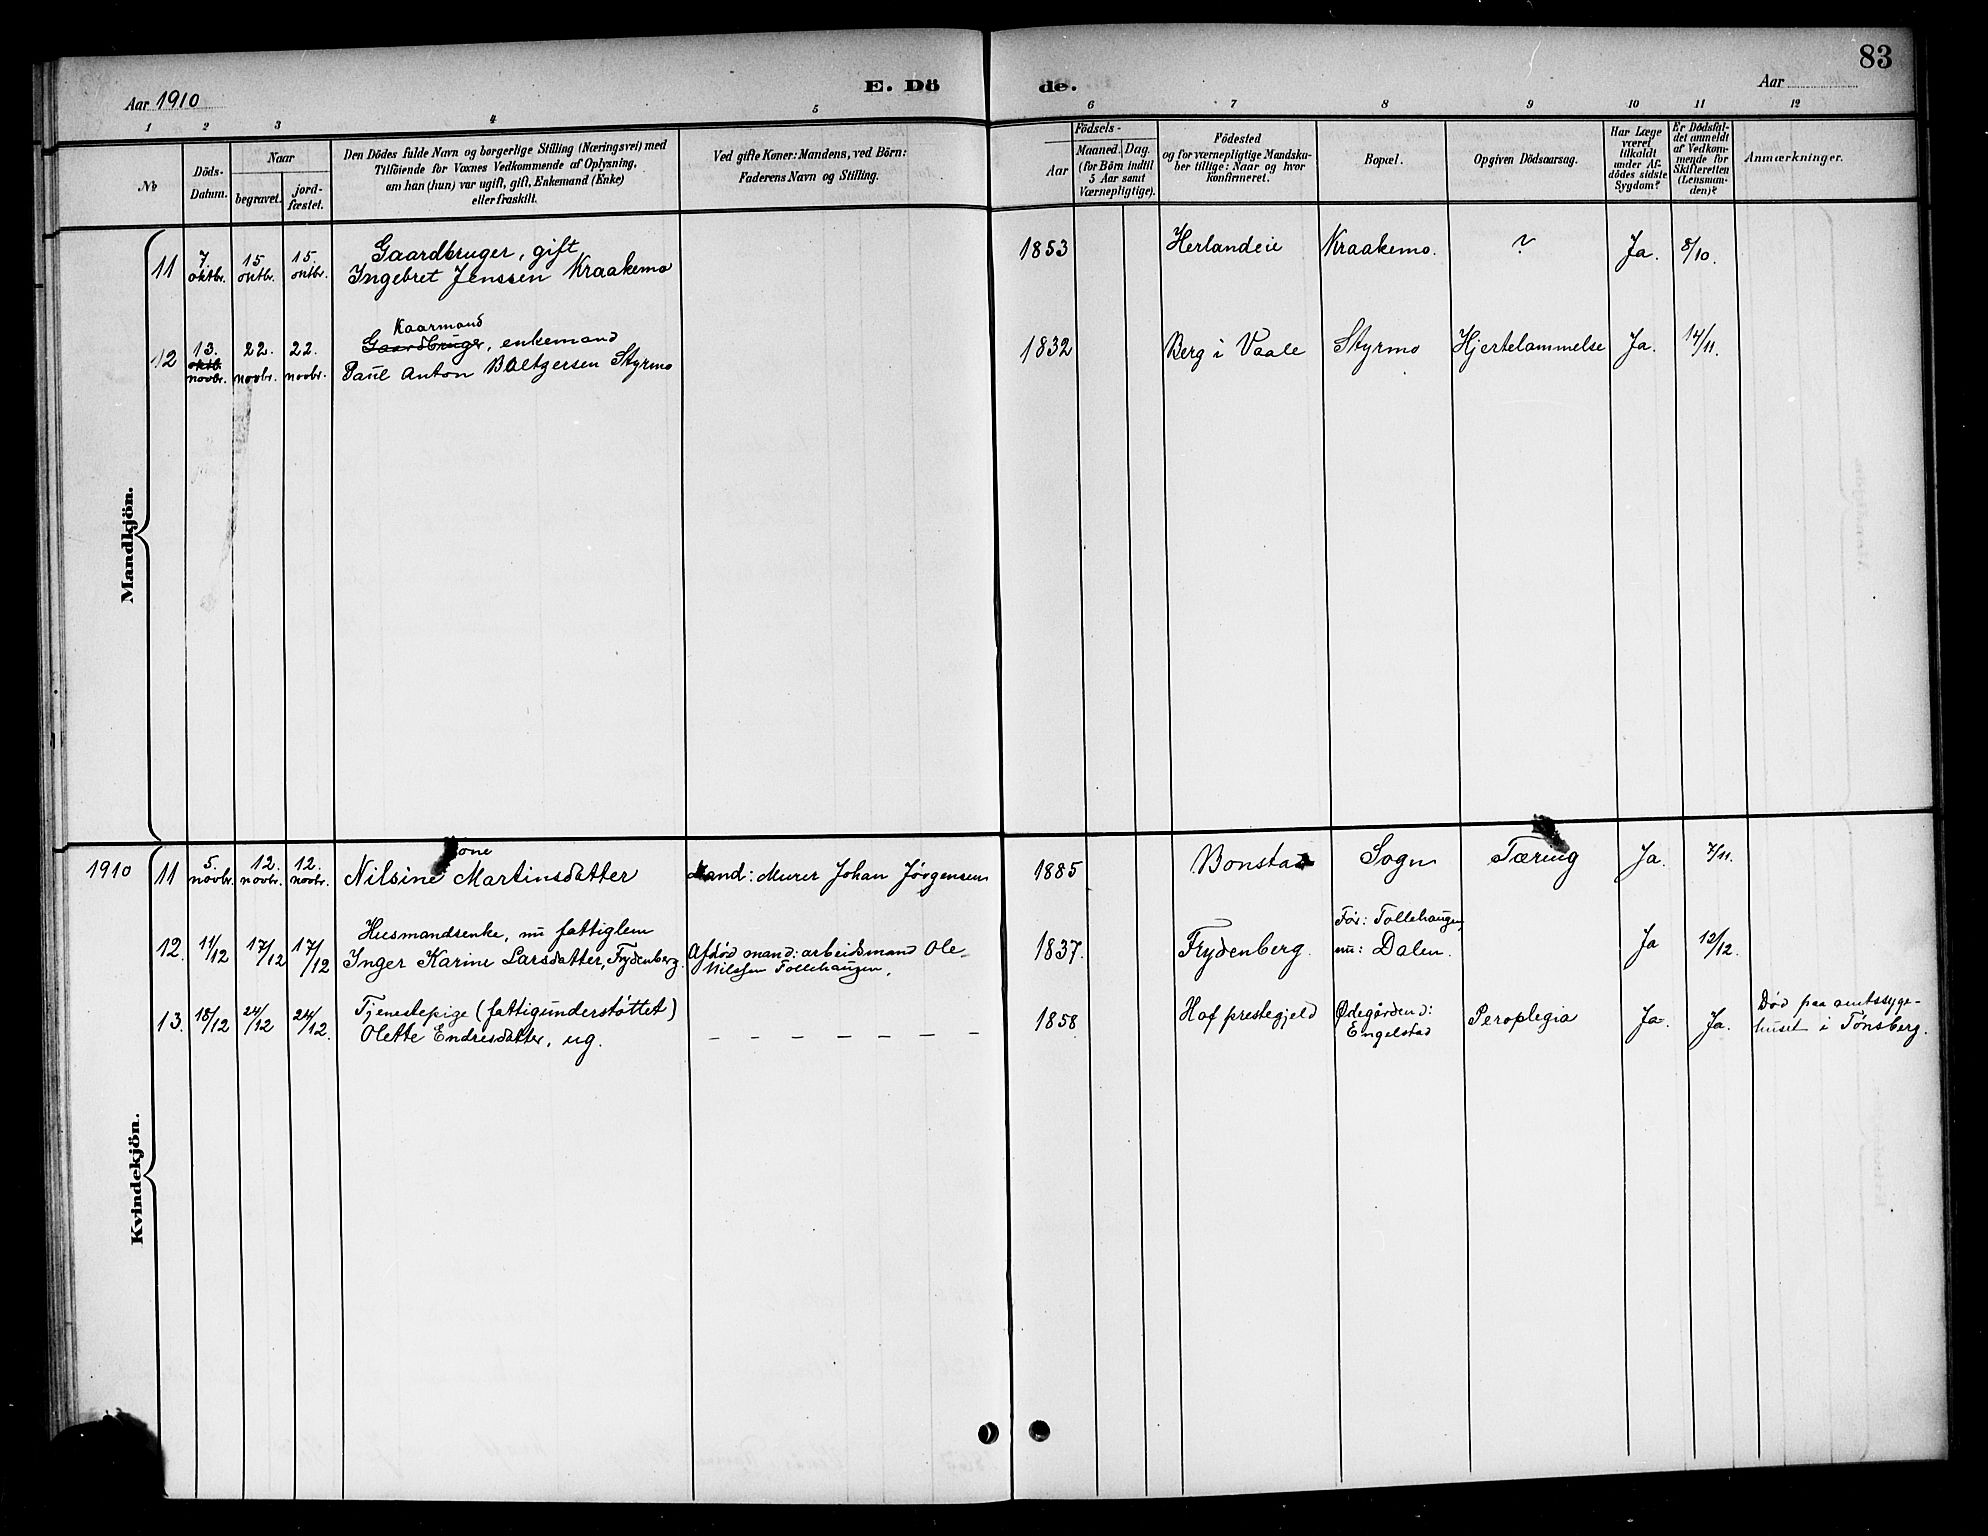 83
Aar 1910
E. Dö
de.
Aar
1 2 3 4 5 6 7 8 9 10 11 12
No
Döds-
Datum.
Naar
begravet.
jord-
fæstet.
Den Dödes fulde Navn og borgerlige Stilling (Næringsvei) med
Tilföiende for Voxnes Vedkommende af Oplysning,
om han (hun) var ugift, gift, Enkemand (Enke)
eller fraskilt.
Ved gifte Koner: Mandens, ved Börn:
Faderens Navn og Stilling.
Födsels-
Aar
Maaned. Dag.
(for Börn indtil
5 Aar samt
Værnepligtige).
Födested
og for værnepligtige Mandska-
ber tillige: Naar og hvor
konfirmeret.
Bopæl.
Opgiven Dödsaarsag.
Har Læge
været
tilkaldt
under Af-
dödes sidste
Sygdom?
Er Dödsfal-
det anmeldt
af Vedkom-
mende for
Skifteretten
(Lensman-
den)?
Anmærkninger.
Mandkjön.
11 7. oktbr. 15. oktbr. 15. oktbr. Gaardbruger, gift
Ingebret Jenssen Kraakemo 1853 Herlandeie Kraakemo. ? Ja. 8/10.
Kaarmand
12 13. oktb. novbr. 22. novbr. 22. novbr. Gaardbruger, enkemand
Paul Anton Baltzersen Styrmo 1832 Berg i Vaale Styrmo Hjertelammelse Ja. 14/11.
Kvindekjön.
1910 11 5. novbr. 12. novbr. 12. novbr. Kone
Nilsine Martinsdatter Mand: Murer Johan Jörgensen 1885 Bonstad Sogn Tæring Ja. 7/11.
12. 11/12 17/12 17/12 Husmandsenke, nu fattiglem
Inger Karine Larsdatter, Frydenberg. Afdød mand: arbeidsmand Ole
Nilssen Tollehaugen. 1837. Frydenberg. Før: Tollehaugen,
nu: Dalen. Ja 12/12.
13. 18/12 24/12 24/12. Tjenestepige (fattigunderstøttet)
Olette Endresdatter, ug. – – – – – – – 1858 Hof prestegjeld Ødegården d:
Engelstad Peroplegia Ja. Ja. Død paa amtssyge-
huset i Tønsberg.